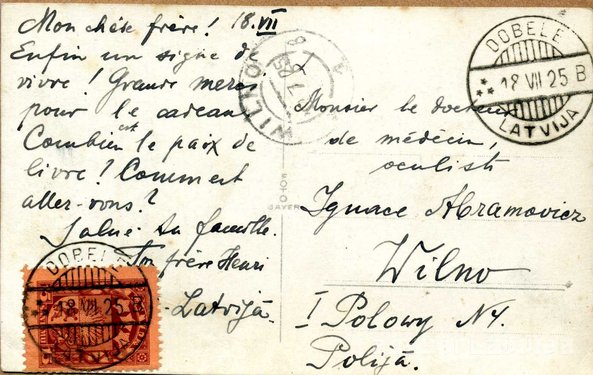 Mon chère frère! 18.VII
Enfin un signe de
vivre! Grande merci
pour le cadeau
Combien est le paix de
livre? Comment
allez-vous?
Salue ta famille.
Ton frère Henri
Latvijā.
DOBELE
18 VII 25 B
LATVIJA
WILNO
Monsieur le docteur
de médécin,
oculiste
Ignace Abramowicz
Wilno
I Polowy N4.
Polijā.
FOTO
BAYER
DOBELE
18 VII 25 B
LATVIJA